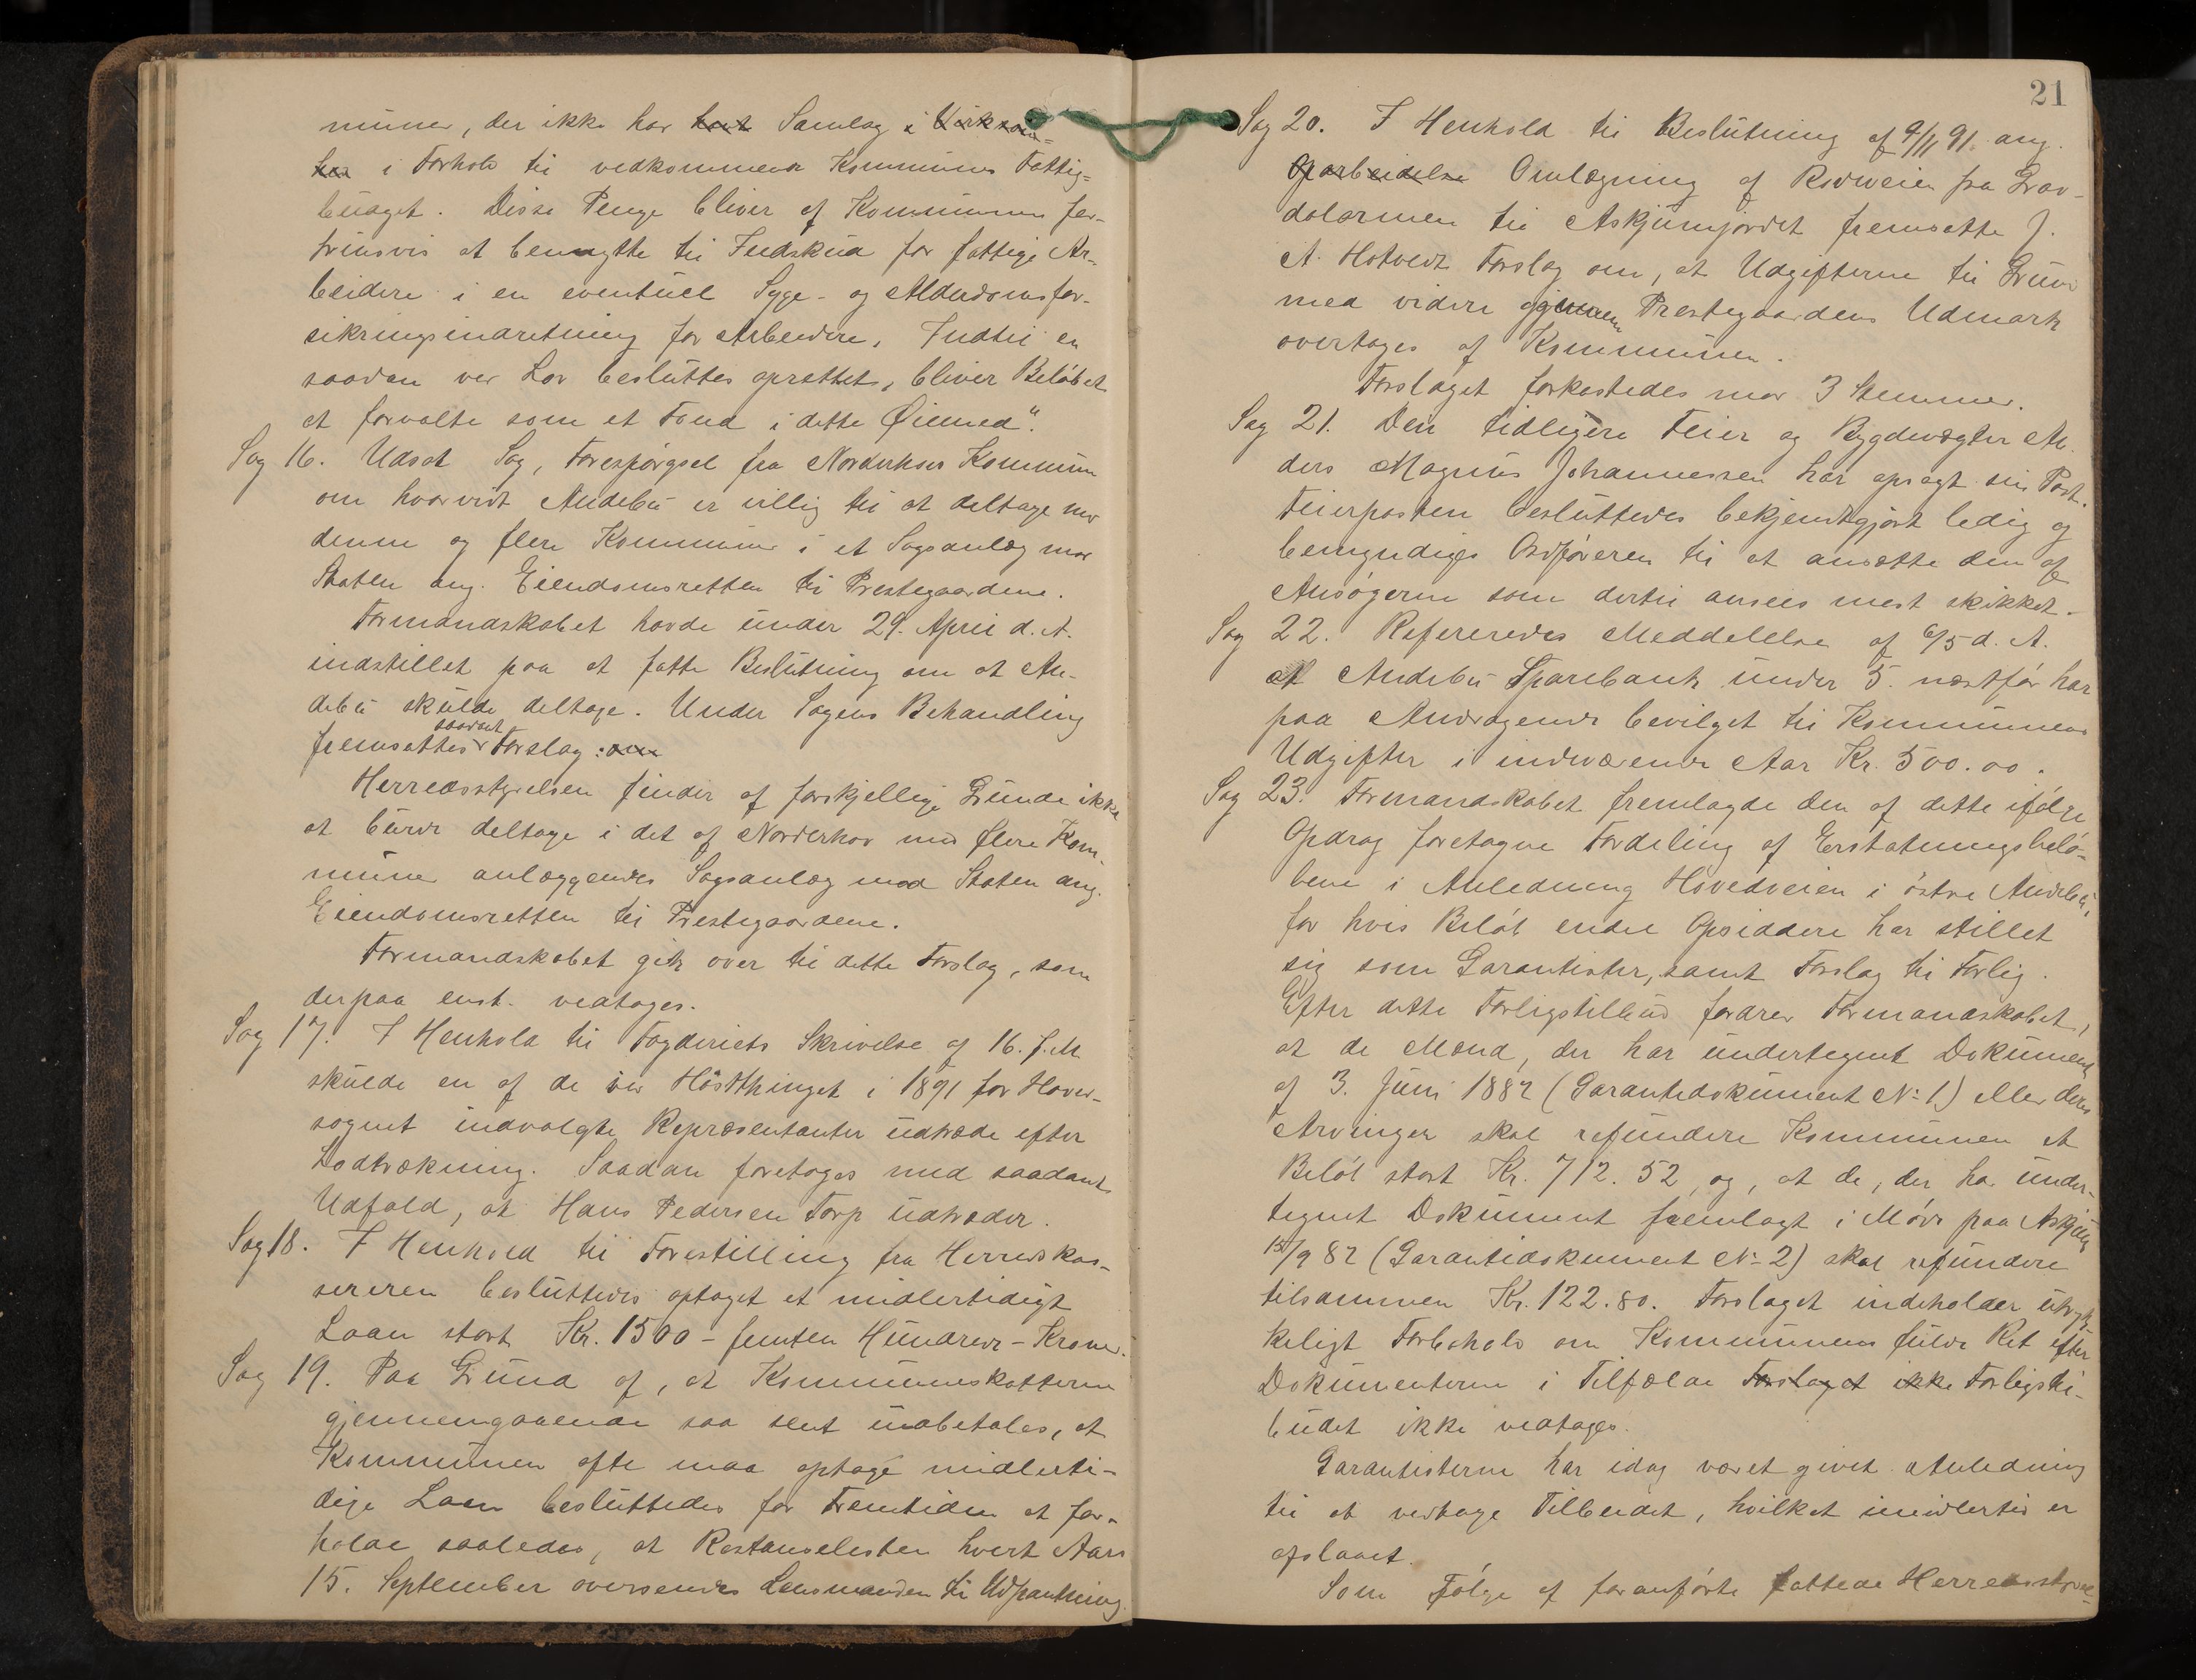 muner, der ikke har havt Samlag i Virksom-
hed i Forhold til vedkommende Kommunes Fattig-
budget. Disse Penge bliver af Kommunen for-
trinsvis at benytte til Indskud for fattige Ar-
beidere i en eventuel Syge- og Alderdomsfor-
sikringsindretning for Arbeidere. Indtil en
saadan ved Lov besluttes oprettet, bliver Beløbet
at forvalte som et Fond i dette Øiemed".
Sag 16. Udsat Sag, Forespørgsel fra Norderhovs Kommune
om hvorvidt Andebu er villig til at deltage med
denne og flere Kommuner i et Sagsanlæg mod
Staten ang. Eiendomsretten til Prestegaardene.
Formandskabet havde under 29. April d. A.
indstillet paa at fatte Beslutning om at An-
debu skulde deltage. Under Sagens Behandling
fremsattes saadant Forslag: om
Herredsstyrelsen finder af forskjellige Grunde ikke
at burde deltage i det af Norderhov med flere Kom-
muner anlæggendes Sagsanlæg mod Staten ang.
Eiendomsretten til Prestegaardene.
Formandskabet gik over til dette Forslag, som
derpaa enst. vedtoges.
Sag 17. I Henhold til Fogderiets Skrivelse af 16. f. M.
skulde en af de ved Høstthinget i 1891 for Hoved-
sognet indvalgte Repræsentanter udtræde efter
Lodtrækning. Saadan foretoges med saadant
Udfald, at Hans Pedersen Torp udtræder.
Sag 18. I Henhold til Forestilling fra Herredskas-
sereren besluttedes optaget et midlertidigt
Laan stort Kr. 1500 - femten Hundrede - Kroner.
Sag 19. Paa Grund af, at Kommuneskatterne
gjennemgaaende saa sent indbetales, at
Kommunen ofte maa optage midlerti-
dige Laan besluttedes for Fremtiden at for-
holde saaledes, at Restanselisten hvert Aars
15. September oversendes Lensmanden til Udpantning.
21
Sag 20. I Henhold til Beslutning af 9/11 91. ang.
Oparbeidelse Omlægning af Rodeveien fra Grav-
dalarmen til Askjumjordet fremsatte J.
A. Hotvedt Forslag om, at Udgifterne til Grund
med videre gjennem Prestegaardens Udmark
overtages af Kommunen.
Forslaget forkastedes mod 3 Stemmer.
Sag 21. Den tidligere Feier og Bygdevægter An-
ders Magnus Johannessen har opsagt sin Post.
Feierposten besluttedes bekjendtgjort ledig og
bemyndiges Ordføreren til at ansætte den af
Ansøgerne som dertil ansees mest skikket.
Sag 22. Refereredes Meddelelse af 6/5 d. A.
at Andebu Sparebank under 5. næstfør har
paa Andragende bevilget til Kommunens
Udgifter i indeværende Aar Kr. 500.00.
Sag 23. Formandskabet fremlagde den af dette ifølge
Opdrag foretagne Fordeling af Erstatningsbelø-
bene i Anledning Hovedveien i østre Andebu,
for hvis Beløb endel Opsiddere har stillet
sig som Garantister, samt Forslag til Forlig.
Efter dette Forligstilbud fordrer Formandskabet,
at de Mænd, der har undertegnet Dokument
af 3. Juni 1882 (Garantidokument No 1) eller deres
Arvinger skal refundere Kommunen et
Beløb stort Kr. 712.52, og, at de, der har under-
tegnet Dokument fremlagt i Møde paa Askjum
15/9 82 (Garantidokument No 2) skal refundere
tilsammen Kr. 122.80. Forslaget indeholder udtryk-
keligt Forbehold om Kommunens fulde Ret efter
Dokumenterne i Tilfælde Forslaget ikke Forligstil-
budet ikke vedtages.
Garantisterne har idag været givet Anledning
til at vedtage Tilbudet, hvilket imidlertid er
afslaaet.
Som Følge af foranførte fattede Herredsstyrel-